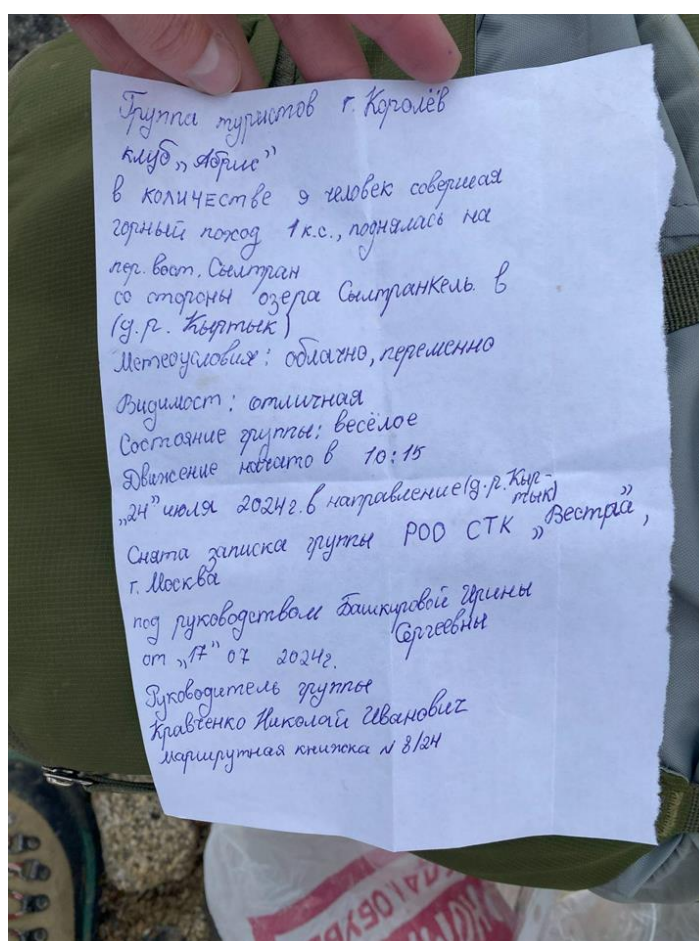 Группа туристов г. Королёв
клуб „Абрис"
в количестве 9 человек совершая
горный поход 1 к.с., поднялась на
пер. вост. Сылтран
со стороны озера Сылтранкель в
(д.р. Кыртык)
Метеоусловия: облачно, переменно
Видимост: отличная
Состояние группы: весёлое
Движение начато в 10:15
„24" июля 2024г. в направление (д.р. Кыр-
тык)
Снята записка группы РОО СТК „Вестра",
г. Москва
под руководством Башкировой Ирины
Сергеевны
от „17" 07 2024г.
Руководитель группы
Кравченко Николай Иванович
маршрутная книжка N 8/24
ОБУВ